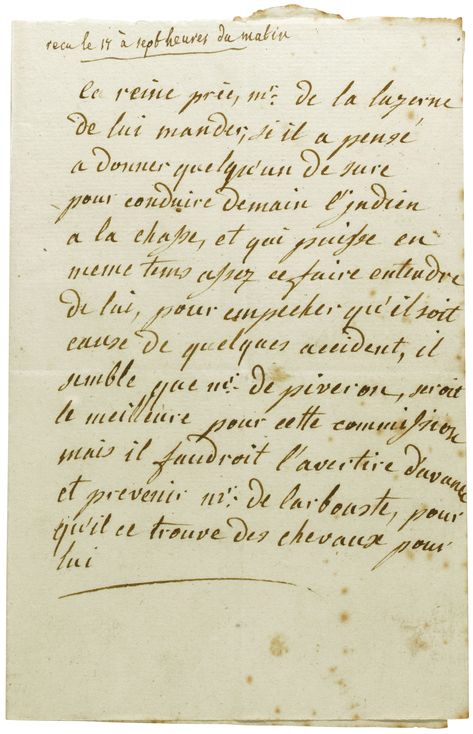 recu le 17 à sept heures du matin
la reine prie, mr. de la luzerne
de lui mander, si il a pensé
a donner quelqu'un de sure
pour conduire demain l'indien
a la chasse, et qui puisse en
meme tems assez ce faire entendre
de lui, pour empecher qu'il soit
cause de quelques accident, il
semble que mr. de piveron, seroit
le meilleure pour cette commission
mais il faudroit l'avertire d'avance
et prevenir mr. de larbouste, pour
qu'il ce trouve des chevaux pour
lui